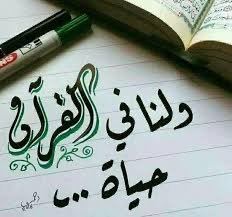 ولنا في القرآن
حياة ...